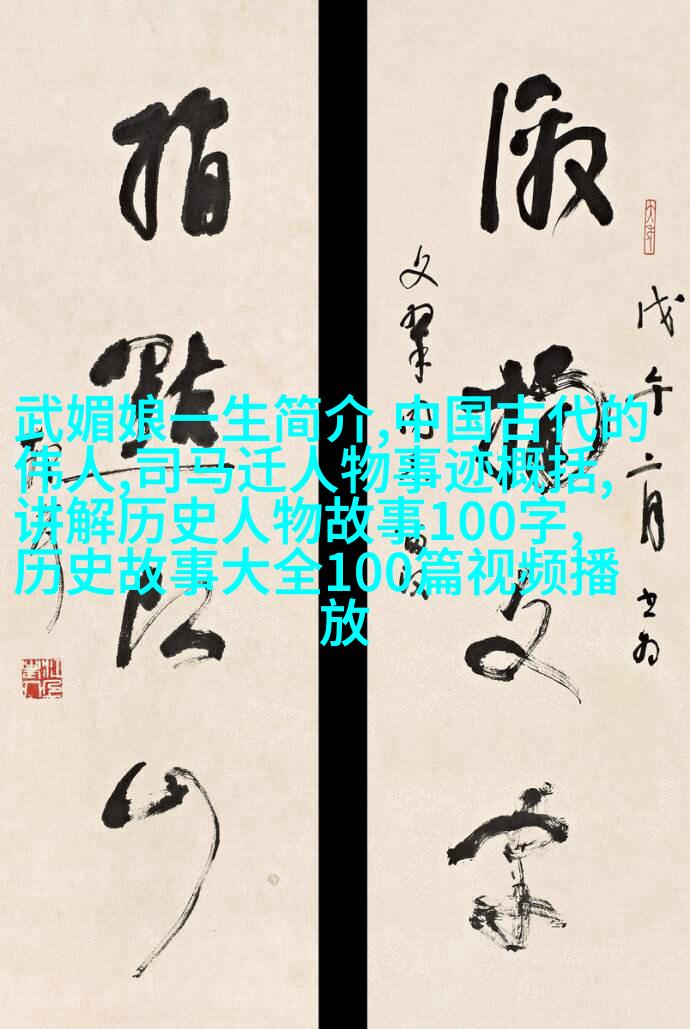 激揚文字
戊午六月
指點江山
武媚娘一生简介,中国古代的
伟人,司马迁人物事迹概括,
讲解历史人物故事100字,
历史故事大全100篇视频播
放